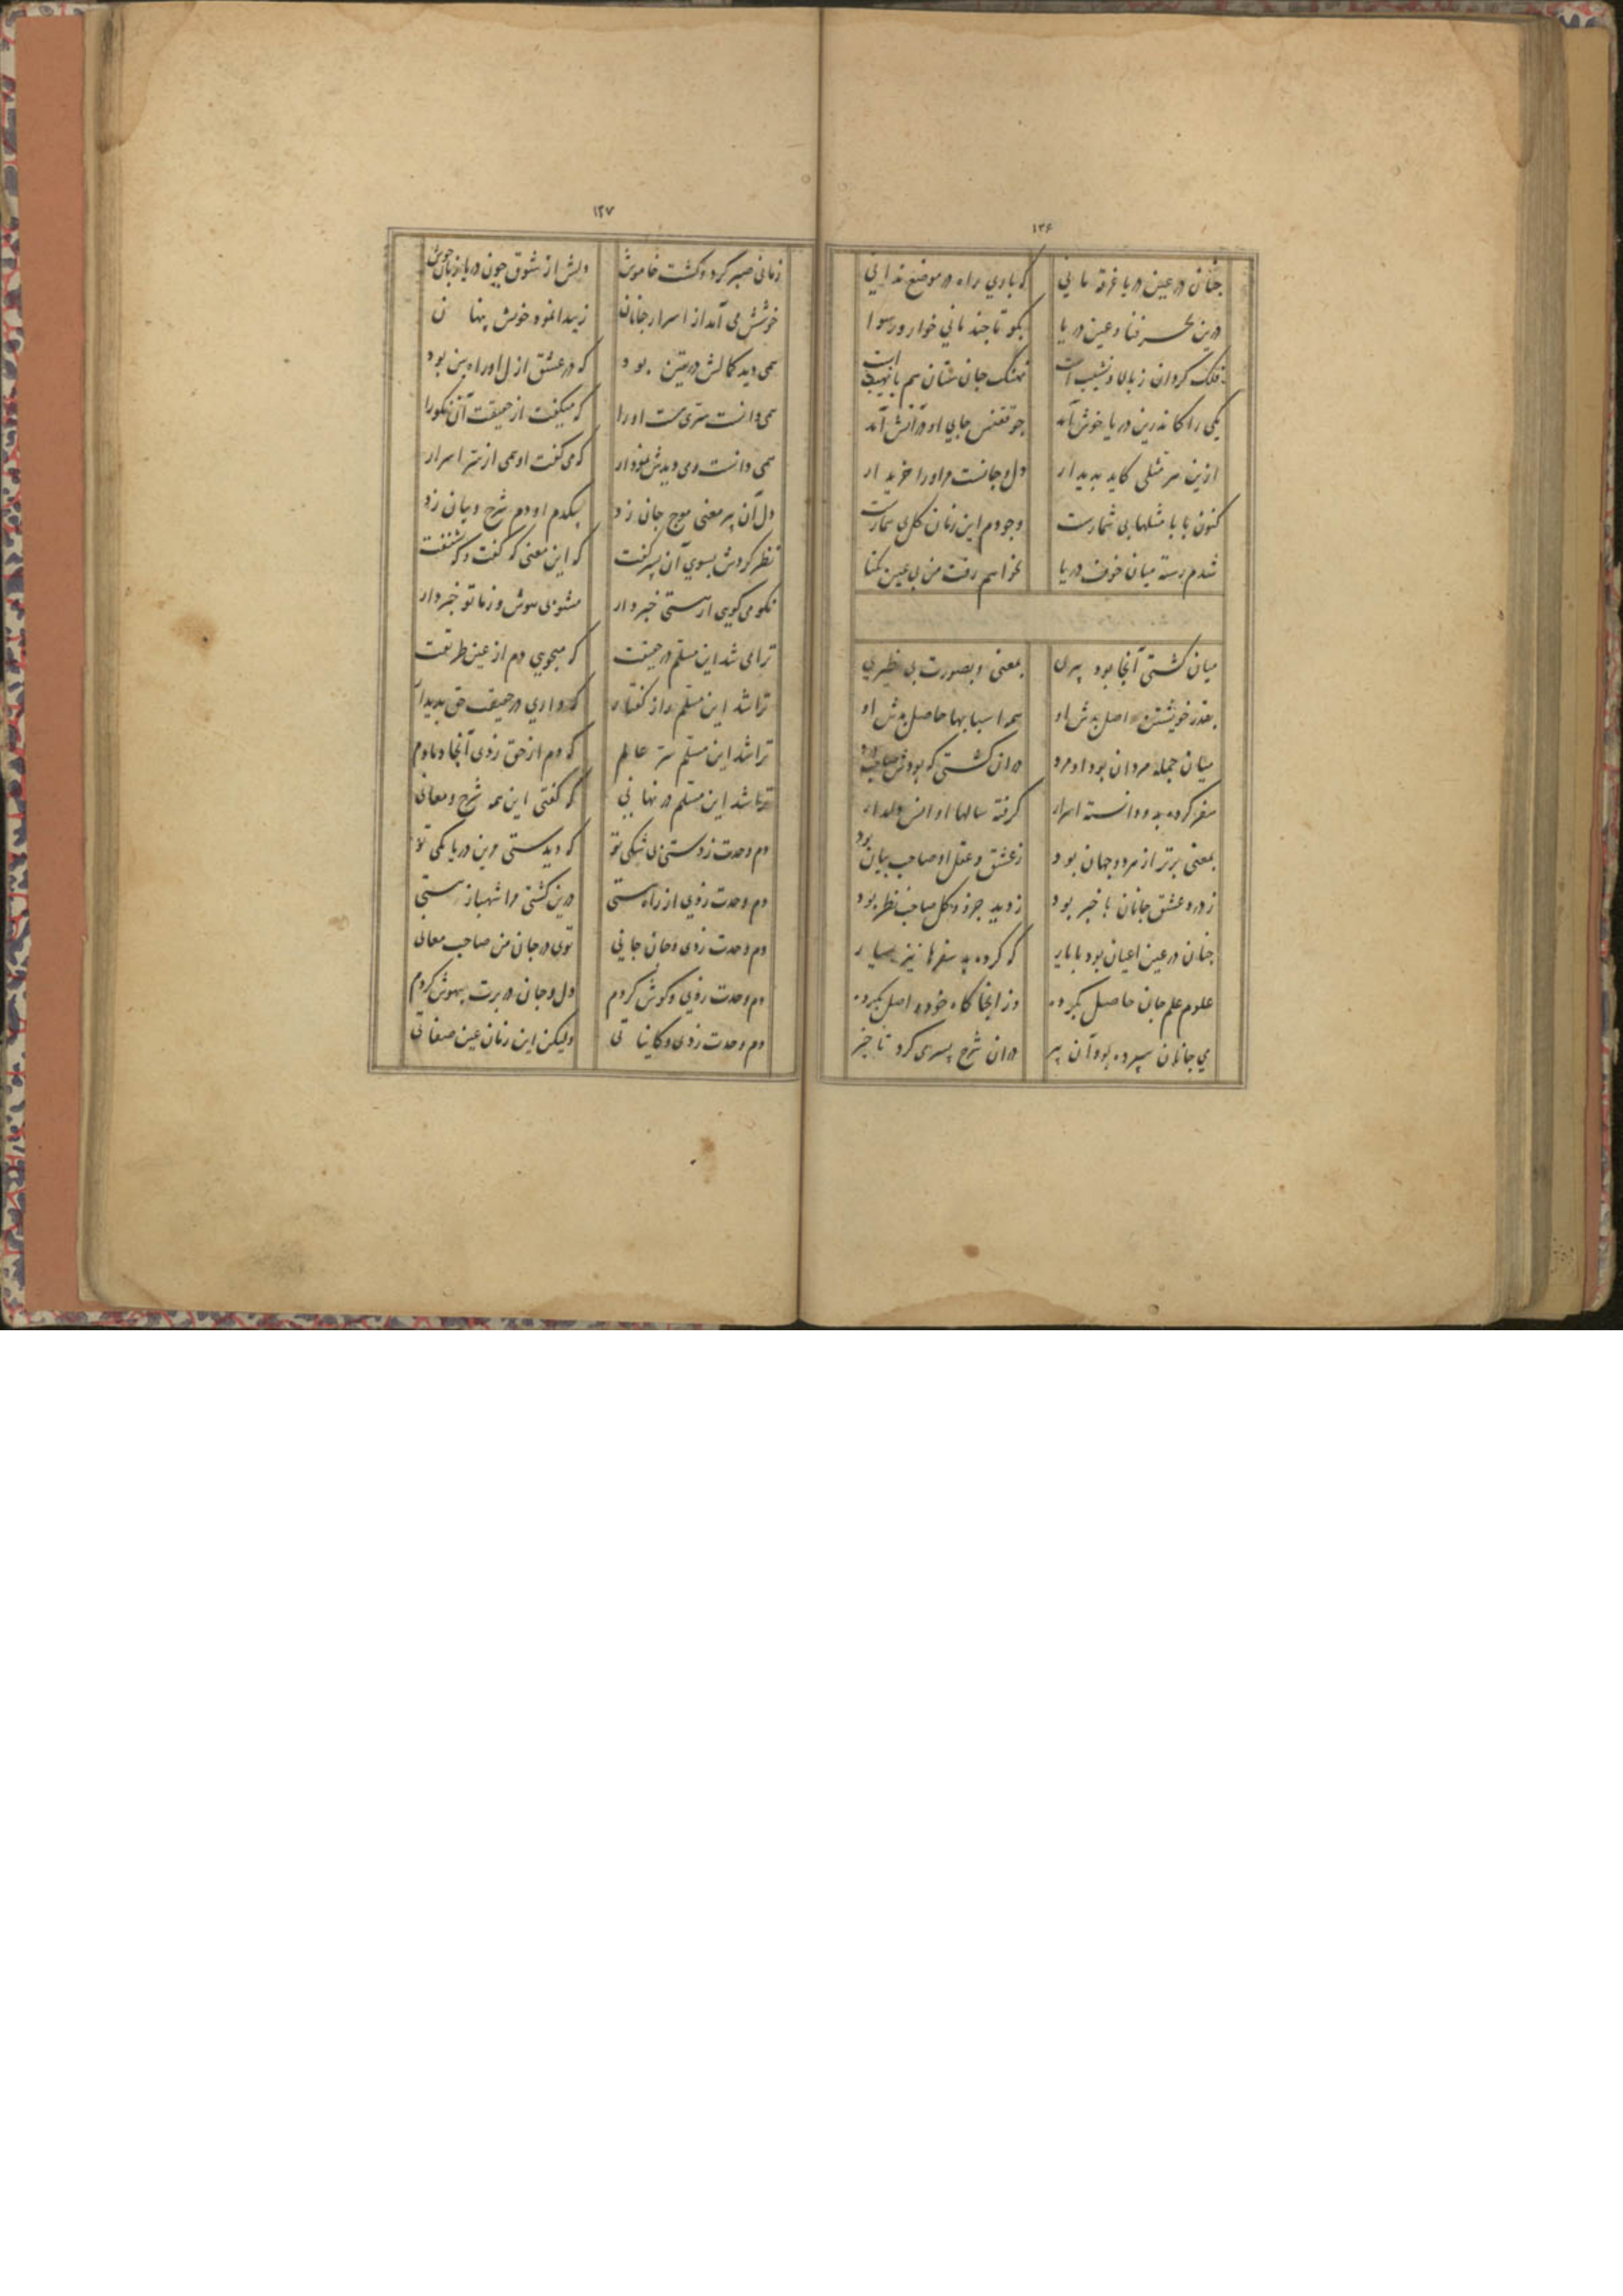 ۱۳۶
چنان در عین دریا غرقه مانی که باری راه در موضع ندانی
درین بحر فنا و عین دریا بگو تا چند مانی خوار و رسوا
فلک گردان ز بالا و نشیب است نهنگ جان ستان هم با نهیب است
یکی را کاندرین دریا خوش آید چو ققنس جای او در آتش آید
ازین سر مثلی کاید پدیدار دل و جانست مر او را خریدار
کنون بابا مثلهابی شمارست وجودم این زمان کلی شمارست
شدم رسته میان خوف دریا نخواهم رفت من بی عین یکتا
میان کشتی آنجا بود پیری بمعنی و بصورت بی نظیری
بقدر خویشتن واصل بدش او همه اسبابها حاصل بدش او
میان جمله مردان بود او مرد دران کشتی که بودش صاحب درد
سفر کرده بد و دانسته اسرار گرفته سالها او انس دلدار
بمعنی برتر از هر دو جهان بود ز عشق و عقل او صاحب بیان بود
ز درد عشق جانان با خبر بود ز دید جزو و کل صاحب نظر بود
چنان در عین اعیان بود با یار که کرده بد سفرها نیز بسیار
علوم علم جان حاصل بکرده وز اینجا گاه خود واصل بکرده
پی جانان سپرده بود آن پیر دران شرح پسر می کرد تاخیر
۱۳۷
زمانی صبر کرد و گشت خاموش دلش از شوق چون دریا زبان جوش
خوشش می آمد از اسرار جانان ز پیدا نمود خویش پنهان
همی دید کمالش در یقین بود که در عشق ازل او راه بین بود
همی دانست سری هست او را که میگفت از حقیقت آن نکو را
همی دانست و می دیدش نمودار که می گفت او همی از سر اسرار
دل آن پیر معنی موج جان زد بیکدم او دم شرح و بیان زد
نظر کردش بسوی آن پسر گفت که این معنی که گفت و که شنفت
نکو می گوی از هستی خبردار مشو بی هوش و زما تو خبردار
ترا می شد این مسلم در حقیقت که میجویی دم از عین طریقت
ترا شد این مسلم راز گفتار که داری در حقیقت حق پدیدار
ترا شد این مسلم سر عالم که دم از حق زدی آنجا دمادم
ترا شد این مسلم در نهانی که گفتی این همه شرح و معانی
دم وحدت زدستی بی شکی تو که دیدستی درین دریا یکی تو
دم وحدت زدی از راه مستی درین کشتی مرا شهباز هستی
دم وحدت زدی و جان جانی توی در جان من صاحب معانی
دم وحدت زدی و گوش کردم دل و جان در برت بیهوش کردم
دم وحدت زدی و کایناتی ولیکن این زمان عین صفاتی